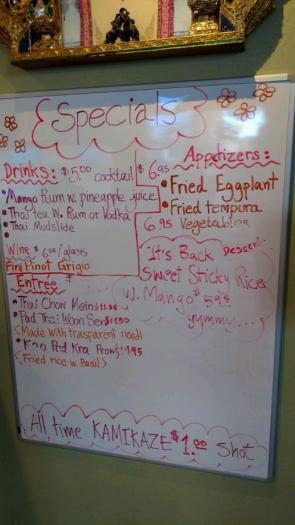 Specials
Drinks: $5.00 cocktail
Mango Rum w. pineapple juice
Thai tea w. Rum or Vodka
Thai Modslide
Wine $6.00/glass
Fini Pinot Grigo
$6.95
Appetizers:
Fried Eggplant
Fried tempura
6.95 Vegetables
It's Back Dessert
Sweet Sticky Rice
w. Mango $5.95
yummy...
Entree
Thai Chow Mein $11.50
Pad Thai Woon Sen $11.50
<Made with trasparent noodl
Pad Kra Prow $11.95
<Fried rice w. Basil>
All time KAMIKAZE $1.00 Shot